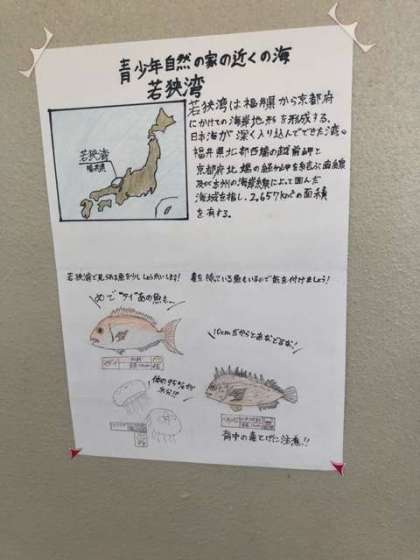 青少年自然の家の近くの海
若狭湾
若狭湾は福井県から京都府
にかけての海岸地形を形成する、
日本海が深く入り込んでできた湾。
福井県北部西端の越前岬と
京都府北端の経ヶ岬を結ぶ直線
及び本州の海岸線によって囲んだ
海域を指し、2,657km²の面積
を有する。
若狭湾
福井県
若狭で見られる魚を少ししょうかいします!
毒を持っている魚もいるので気を付けましょう!
めで"タイ"あの魚も…
10cmだからとあなどるな!
体の95%が
水分!?
背中の毒とげに注意!!